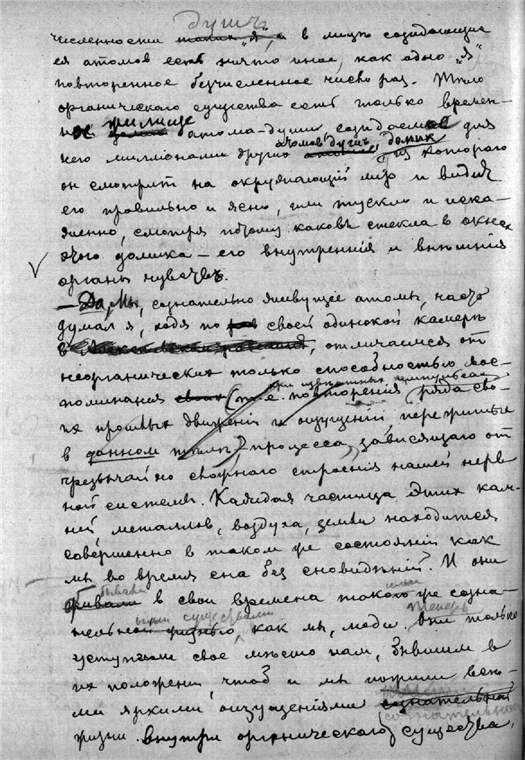 душъ
численности такихъ "я", а въ лицѣ созидающихъ
ея атомовъ есть ничто иное, какъ одно "я"
повторенное безчисленное число разъ. Тѣло
органическаго существа есть только времен-
ное жилище атома-души созидаемое для
него милліонами другихъ атомовъ душъ, домикъ изъ котораго
онъ смотритъ на окружающій міръ и видитъ
его правильно и ясно, или тускло и иска-
женно, смотря потому каковы стекла въ окнахъ
этого домика – его внутренніе и внѣшніе
органы чувствъ.
– Да, мы, сознательно живущіе атомы, часто
думалъ я, ходя по своей одинокой камерѣ
въ отличаемся отъ
неорганическихъ только способностью вос-
поминанія (т.е. повторенія ряда сво-
ихъ прошлыхъ движеній и ощущеній пережитыхъ
въ данномъ процесса, зависящаго отъ
чрезвычайно сложнаго строенія нашей нерв-
ной системы. Каждая частица этихъ кам-
ней, металловъ, воздуха, земли находится
совершенно въ такомъ же состояніи какъ
мы во время сна безъ сновидѣній. И они
бывали
въ свои времена такою же созна-
тельной жизнью, какъ мы, люди. Они только теперь
уступили свое мѣсто намъ, бывшимъ въ
ихъ положеніи, чтобъ и мы пожили все-
ми яркими ощущеніями сознательной
(сознательной
жизни внутри органическаго существа.